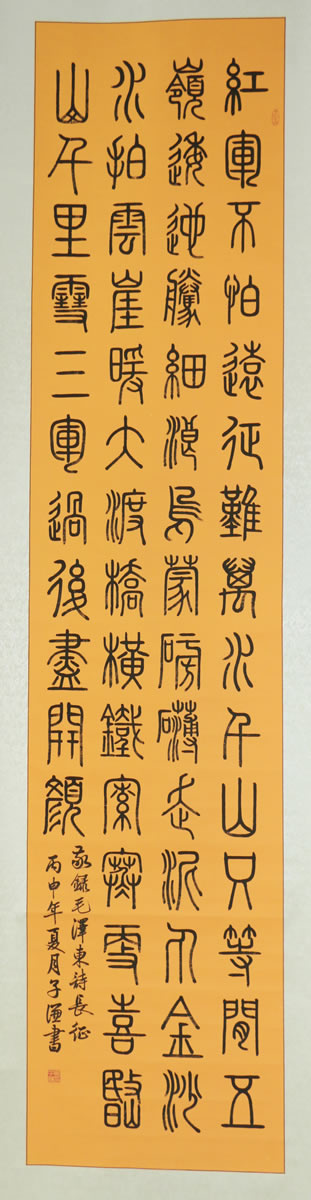 紅軍不怕遠征難萬水千山只等閒五
嶺逶迤騰細浪烏蒙磅礴走泥丸金沙
水拍雲崖暖大渡橋橫鐵索寒更喜岷
山千里雪三軍過後盡開顏
敬錄毛澤東詩長征
丙申年夏月子書